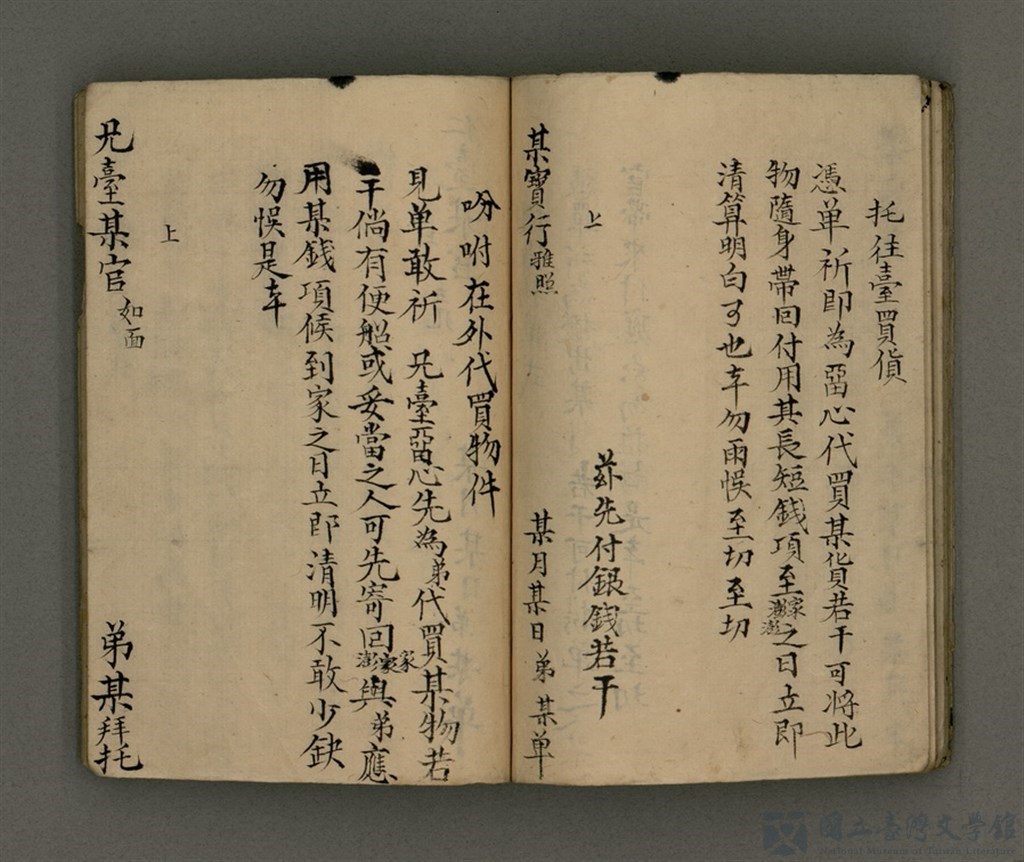 托往臺買貨
憑单祈即為畱心代買某貨若干可將此
物隨身帶回付用其長短錢項至家澎之日立即
清算明白可也幸勿雨悮至切至切
茲先付銀錢若干
上
某寶行雅照
某月某日弟某单
吩咐在外代買物件
見单敢祈 兄臺畱心先為弟代買某物若
干倘有便船或妥當之人可先寄回澎家與弟應
用某錢項候到家之日立即清明不敢少缺
勿悮是幸
上
兄臺某官如面
弟某拜托
國立臺灣文學館
National Museum of Taiwan Literature